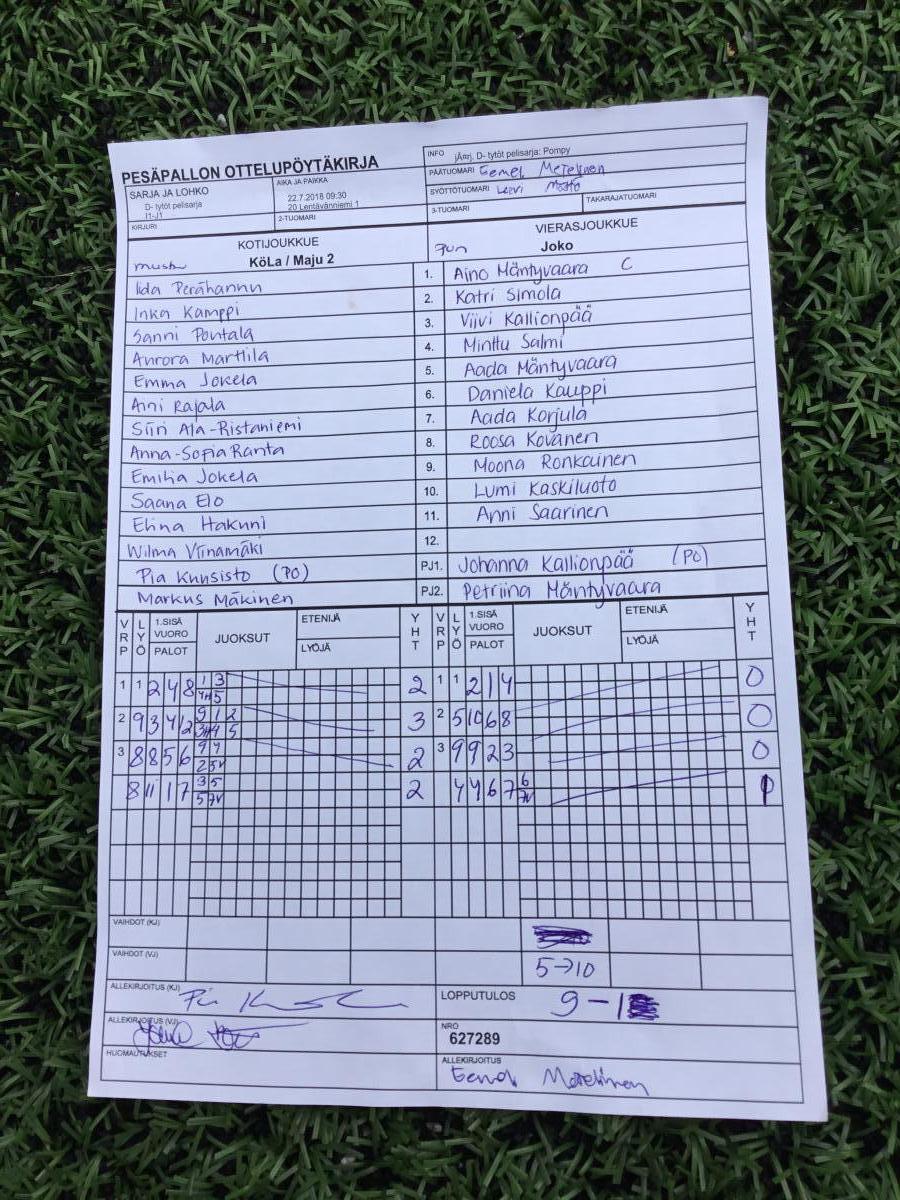 PESÄPALLON OTTELUPÖYTÄKIRJA
INFO jÄ¤rj. D- tytöt pelisarja: Pompy
PÄÄTUOMARI
SYÖTTÖTUOMARI
3-TUOMARI TAKARAJATUOMARI
SARJA JA LOHKO
D- tytöt pelisarja
I1-J1
KIRJURI
AIKA JA PAIKKA
22.7.2018 09:30
20 Lentävänniemi 1
2-TUOMARI
KOTIJOUKKUE VIERASJOUKKUE
KöLa / Maju 2 Joko
Iida Perähannu 1. Aino Mäntyvaara C
Inka Kamppi 2. Katri Simola
Sanni Pontala 3. Viivi Kallionpää
Aurora Marttila 4. Minttu Salmi
Emma Jokela 5. Aada Mäntyvaara
Aini Rajala 6. Daniela Kauppi
Siiri Ala-Ristaniemi 7. Aada Korjula
Anna-Sofia Ranta 8. Roosa Kovanen
Emilia Jokela 9. Moona Ronkainen
Saana Elo 10. Lumi Kaskiluoto
Elina Hakuni 11. Anni Saarinen
Wilma Viinamäki 12.
Pia Kuusisto (PO) PJ1. Johanna Kallionpää (PO)
Markus Mäkinen PJ2. Petriina Mäntyvaara
VRP LYÖ 1.SISÄ VUORO PALOT JUOKSUT ETENIJÄ LYÖJÄ YHT VRP LYÖ 1.SISÄ VUORO PALOT JUOKSUT ETENIJÄ LYÖJÄ YHT
1 1 2 4 8 1 3 2 1 1 2 1 4 0
2 9 3 4 1/2 9 1 2 3 2 5 10 6 8 0
3 8 8 5 6 9 4 2 3 9 9 2 3 0
8 11 1 7 3 5 2 4 4 6 7 6 1
VAIHDOT (KJ)
VAIHDOT (VJ) 5→10
ALLEKIRJOITUS (KJ) LOPPUTULOS 9-1
ALLEKIRJOITUS (VJ) NRO
627289
HUOMAUTUKSET ALLEKIRJOITUS